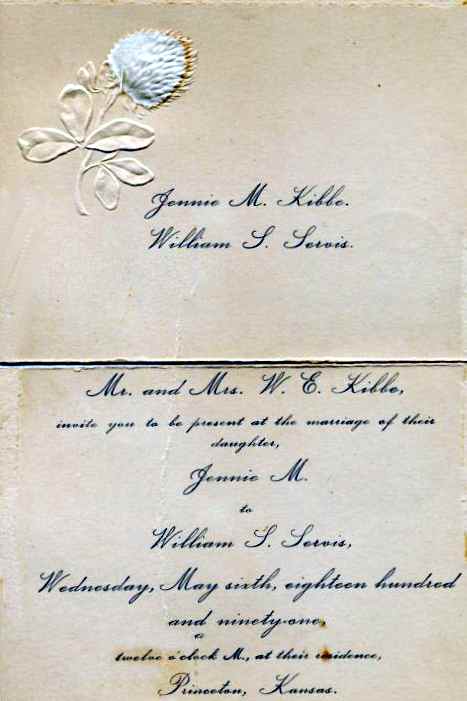 Jennie M. Kibbe.
William S. Servis.
Mr. and Mrs. W. E. Kibbe,
invite you to be present at the marriage of their
daughter,
Jennie M.
to
William S. Servis,
Wednesday, May sixth, eighteen hundred
and ninety-one,
at
twelve o'clock M., at their residence,
Princeton, Kansas.